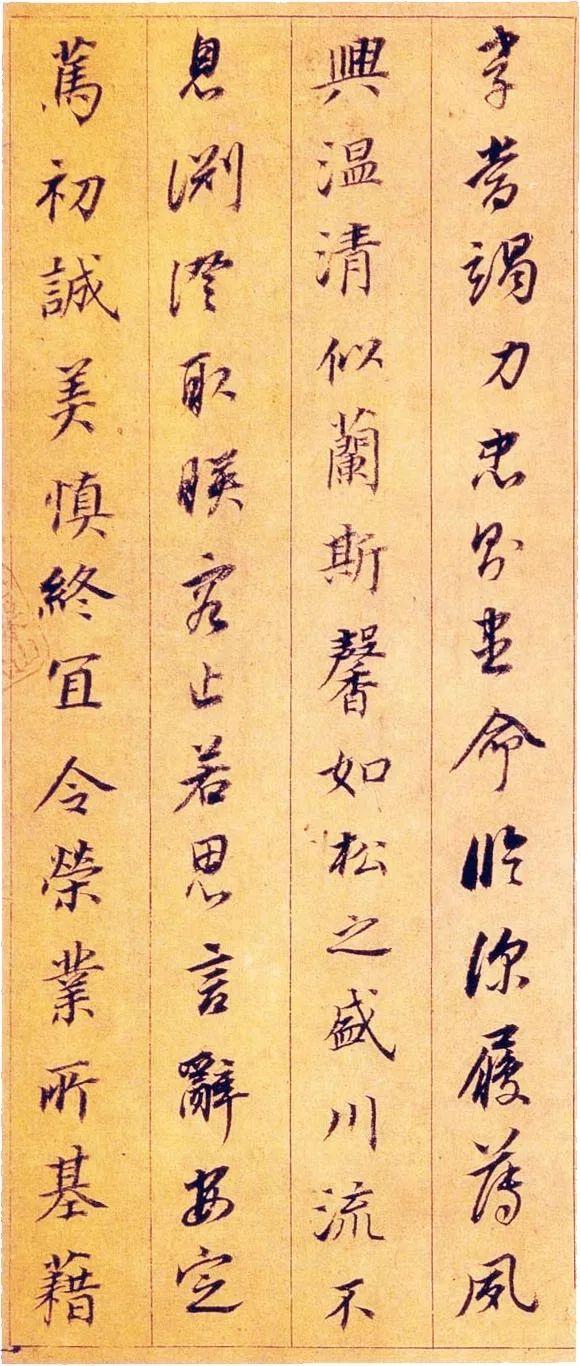 孝當竭力忠則盡命臨深履薄夙
興温清似蘭斯馨如松之盛川流不
息渊澄取暎容止若思言辭安定
篤初誠美慎終宜令榮業所基藉